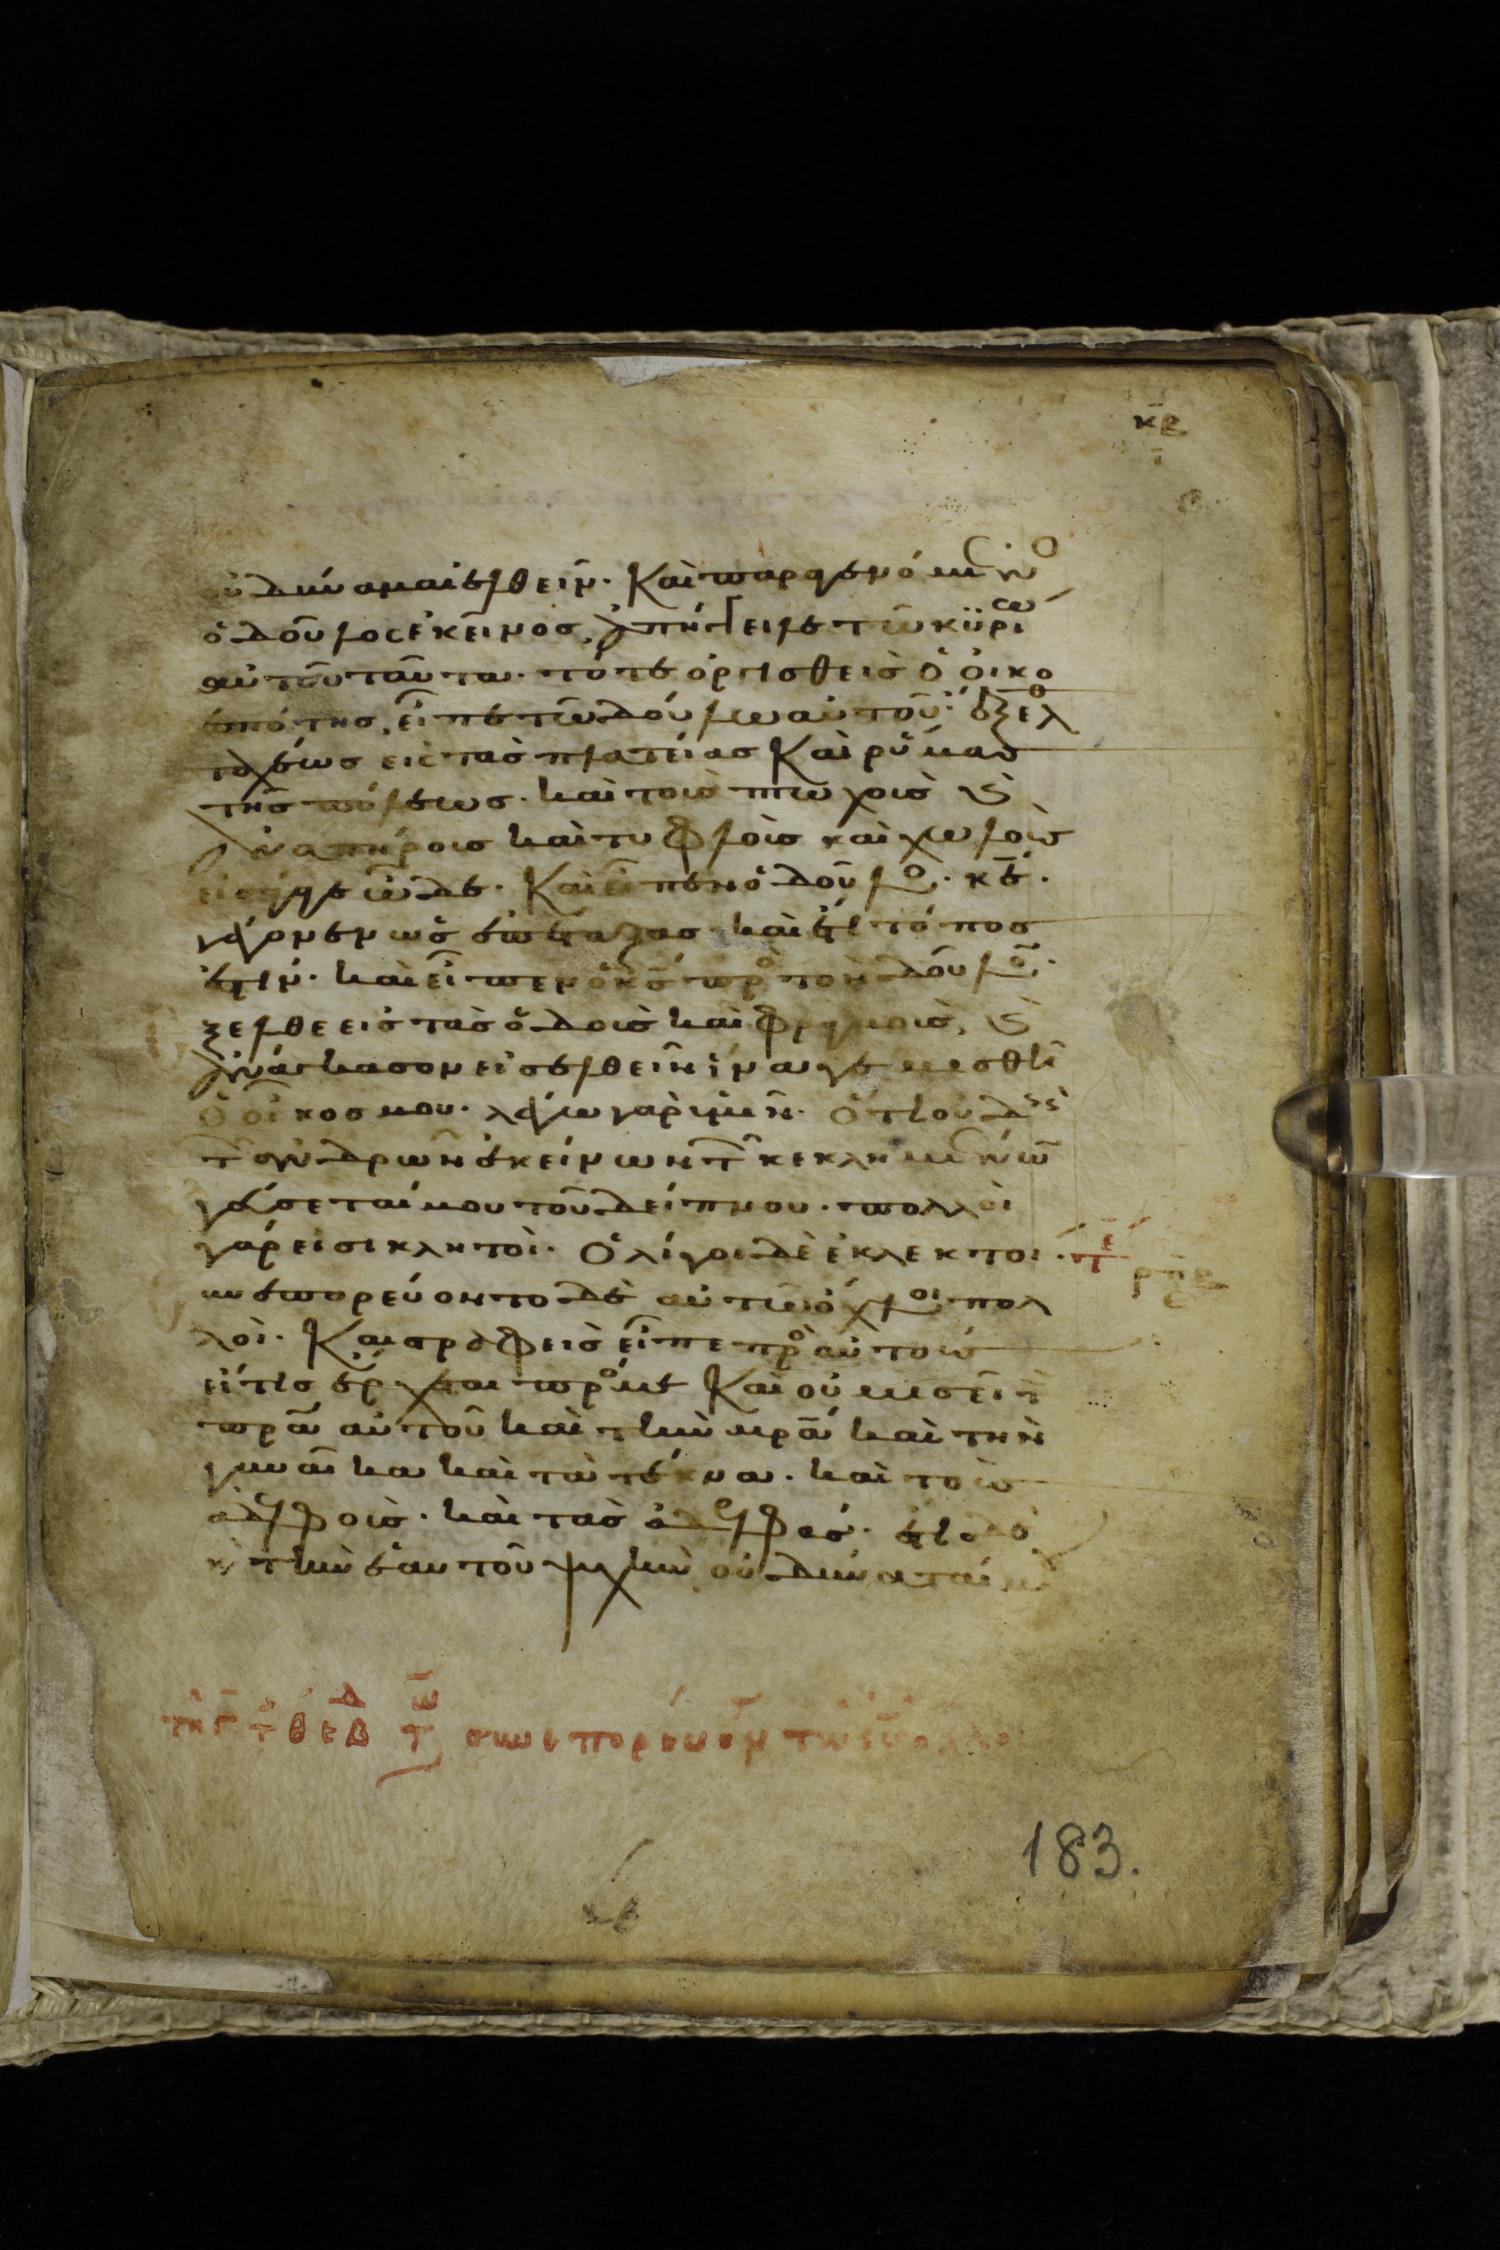 κβ
οὐ δύναμαι ἐλθεῖν. Καὶ παραγενόμενος
ὁ δοῦλος ἐκεῖνος, ἀπήγγειλε τῶ κυρίω
αὐτοῦ ταῦτα. τότε ὀργισθεὶς ὁ οἰκο
δεσπότης, εἶπε τῶ δούλω αὐτοῦ. ἔξελθε
ταχέως εἰς τὰς πλατείας Καὶ ρύμας
τῆς πόλεως. καὶ τοὺς πτωχοὺς καὶ
ἀναπήρους καὶ τυφλοὺς καὶ χωλοὺς
εἰσάγαγε ὧδε. Καὶ εἶπεν ὁ δοῦλος. κε.
γέγονεν ὡς ἐπέταξας. καὶ ἔτι τόπος
ἐστίν. καὶ εἶπεν ὁ κς πρὸς τὸν δοῦλον.
ἔξελθε εἰς τὰς ὁδοὺς καὶ φραγμοὺς, καὶ
ἀνάγκασον εἰσελθεῖν ἵνα γεμισθῆ
ὁ οἶκος μου. λέγω γὰρ ὑμῖν. ὅτι οὐδεὶς
τῶν ἀνδρῶν ἐκείνων τῶν κεκλημένων
γεύσεταί μου τοῦ δείπνου. πολλοὶ
γάρ εἰσι κλητοὶ. ὀλίγοι δὲ ἐκλεκτοι. τε
συνεπορεύοντο δὲ αὐτῶ ὄχλοι πολ
λοὶ. Καὶ στραφεὶς εἶπε πρὸς αὐτοὺς
εἴ τις ἔρχεται πρός με Καὶ οὐ μισεῖ τὸν
πρα αὐτοῦ καὶ τὴν μρα καὶ τὴν
γυναῖκα καὶ τὰ τέκνα. καὶ τοὺς
ἀδελφοὺς. καὶ τὰς ἀδελφάς. ἔτι δὲ
καὶ τὴν ἑαυτοῦ ψυχὴν οὐ δύναταί μου
συνεπορεύοντο τῶ ιυ
183.